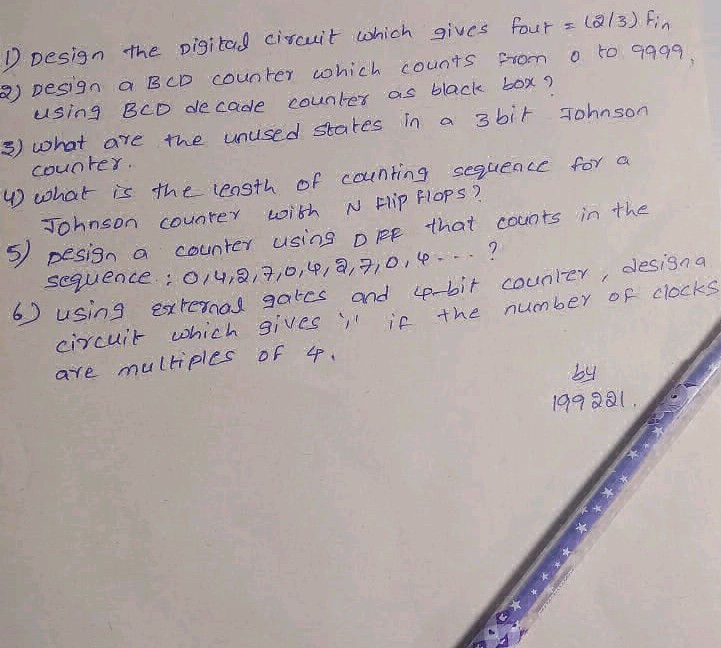 1) Design the Digital circuit which gives fout = (2/3) Fin
2) Design a BCD counter which counts from 0 to 9999,
using BCD decade counter as black box?
3) what are the unused states in a 3 bit Johnson
counter.
4) what is the length of counting sequence for a
Johnson counter with N Flip Flops?
5) Design a counter using D FF that counts in the
sequence : 0,4,2,7,0,4,2,7,0,4 - - - ?
6) using external gates and 4-bit counter, design a
circuit which gives '1' if the number of clocks
are multiples of 4.
by
199221.